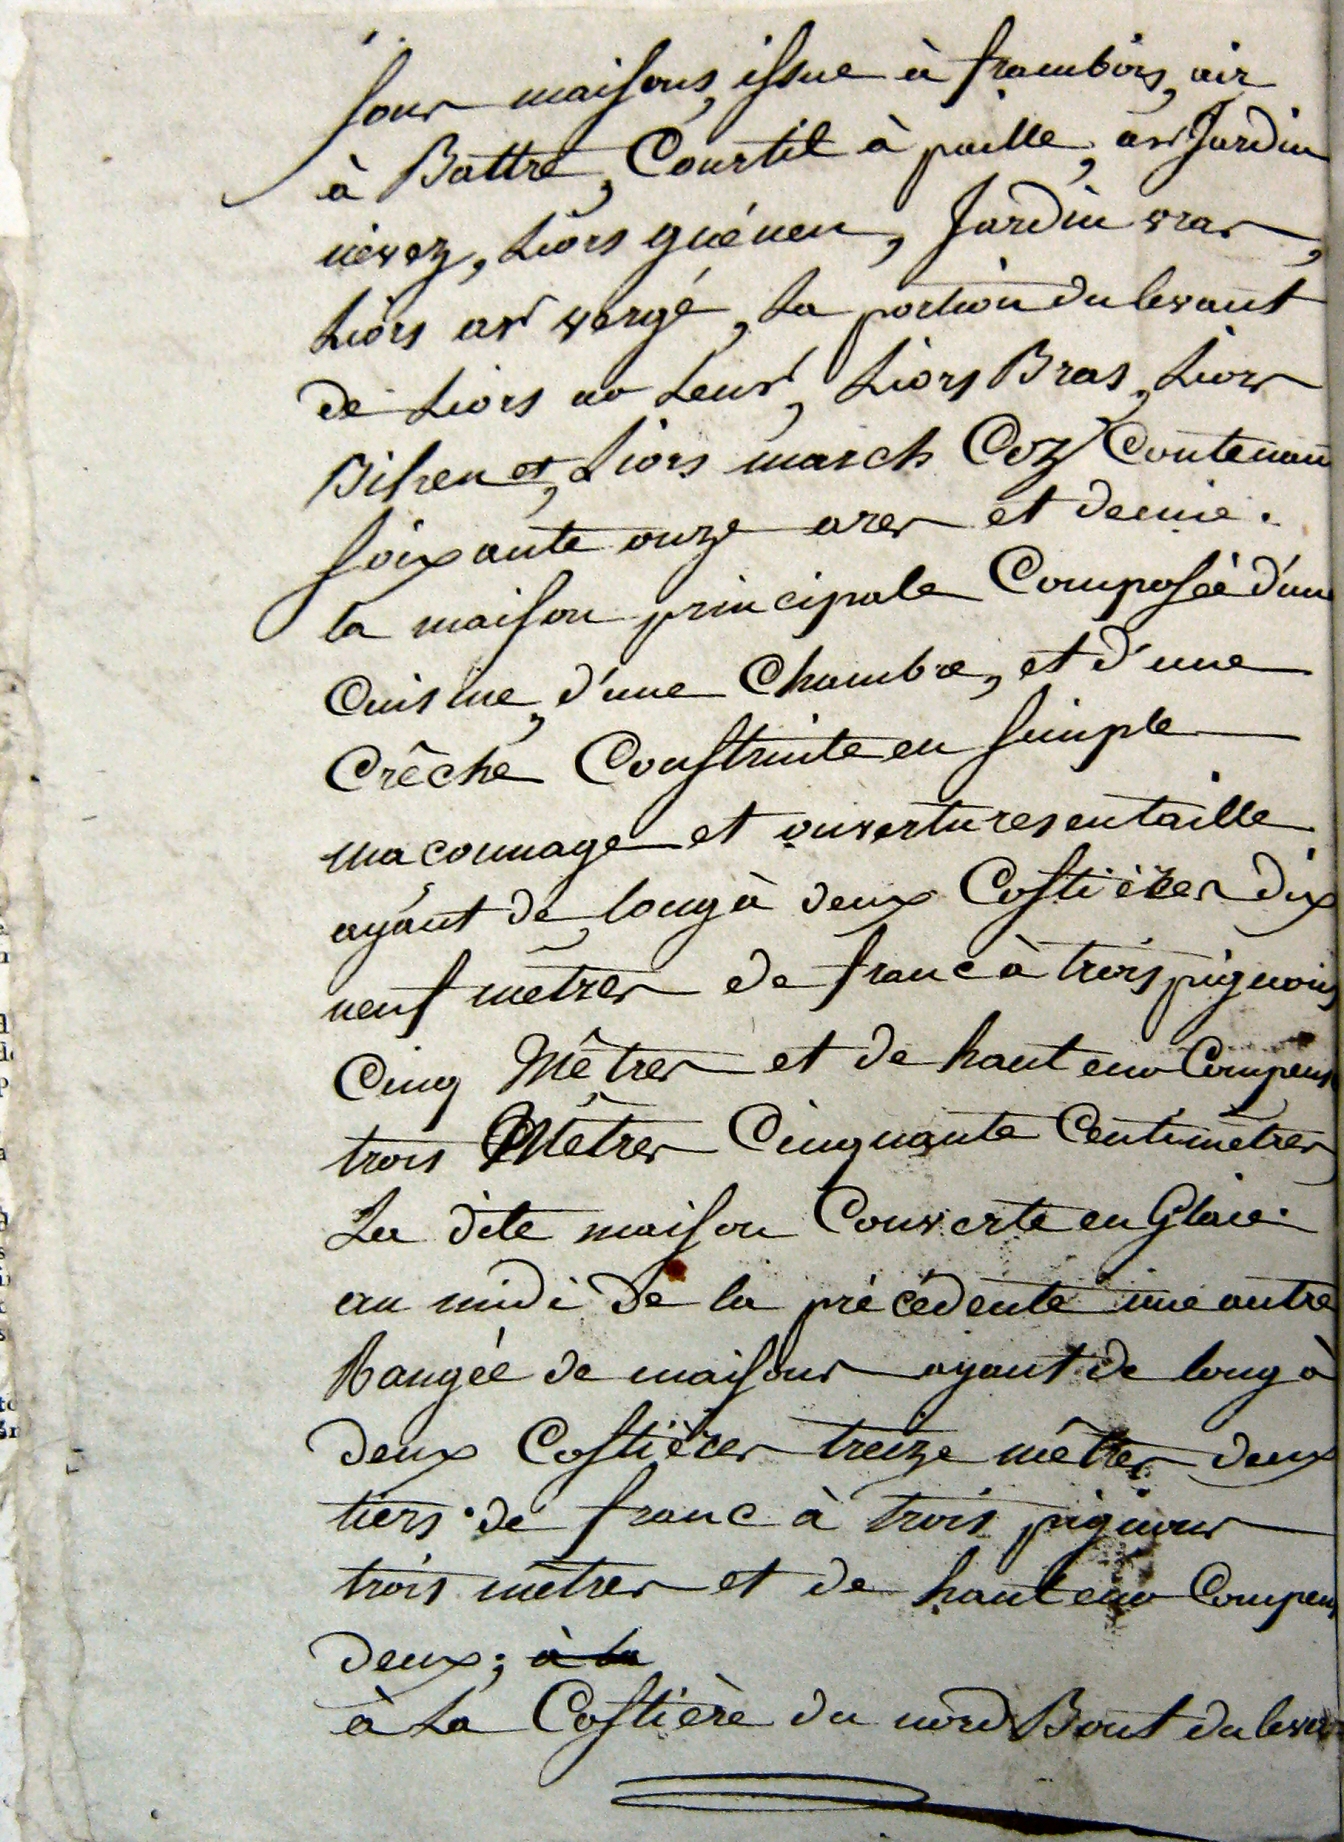 sous maisons, issue à frambois, air
à Battre, Courtil à paille, ar Jardin
nevez, Liors guénen, Jardin vras,
Liors ar vergé, La portion du levant
de Liors ao Leur, Liors Bras, Liors
Bihen et, Liors march Coz Contenan
soixante onze ares et demie.
la maison principale Composée d'une
Cuisine, d'une Chambre, et d'une
Crêche Construite en simple
maconnage et ouvertures en taille
ayant de long à deux Costières dix
neuf mètres de franc à trois pignons
Cinq Mêtres et de haut euv Compens
trois Mêtres Cinquante Centimètres
La dite maison Couverte en Glaie.
au midi de la précédente une autre
Rangée de maisons ayant de long à
deux Costières treize mêtres deux
tiers de franc à trois pignons
trois mètres et de haut euv Compens
deux; à la
à La Costière du nord Bout du levan